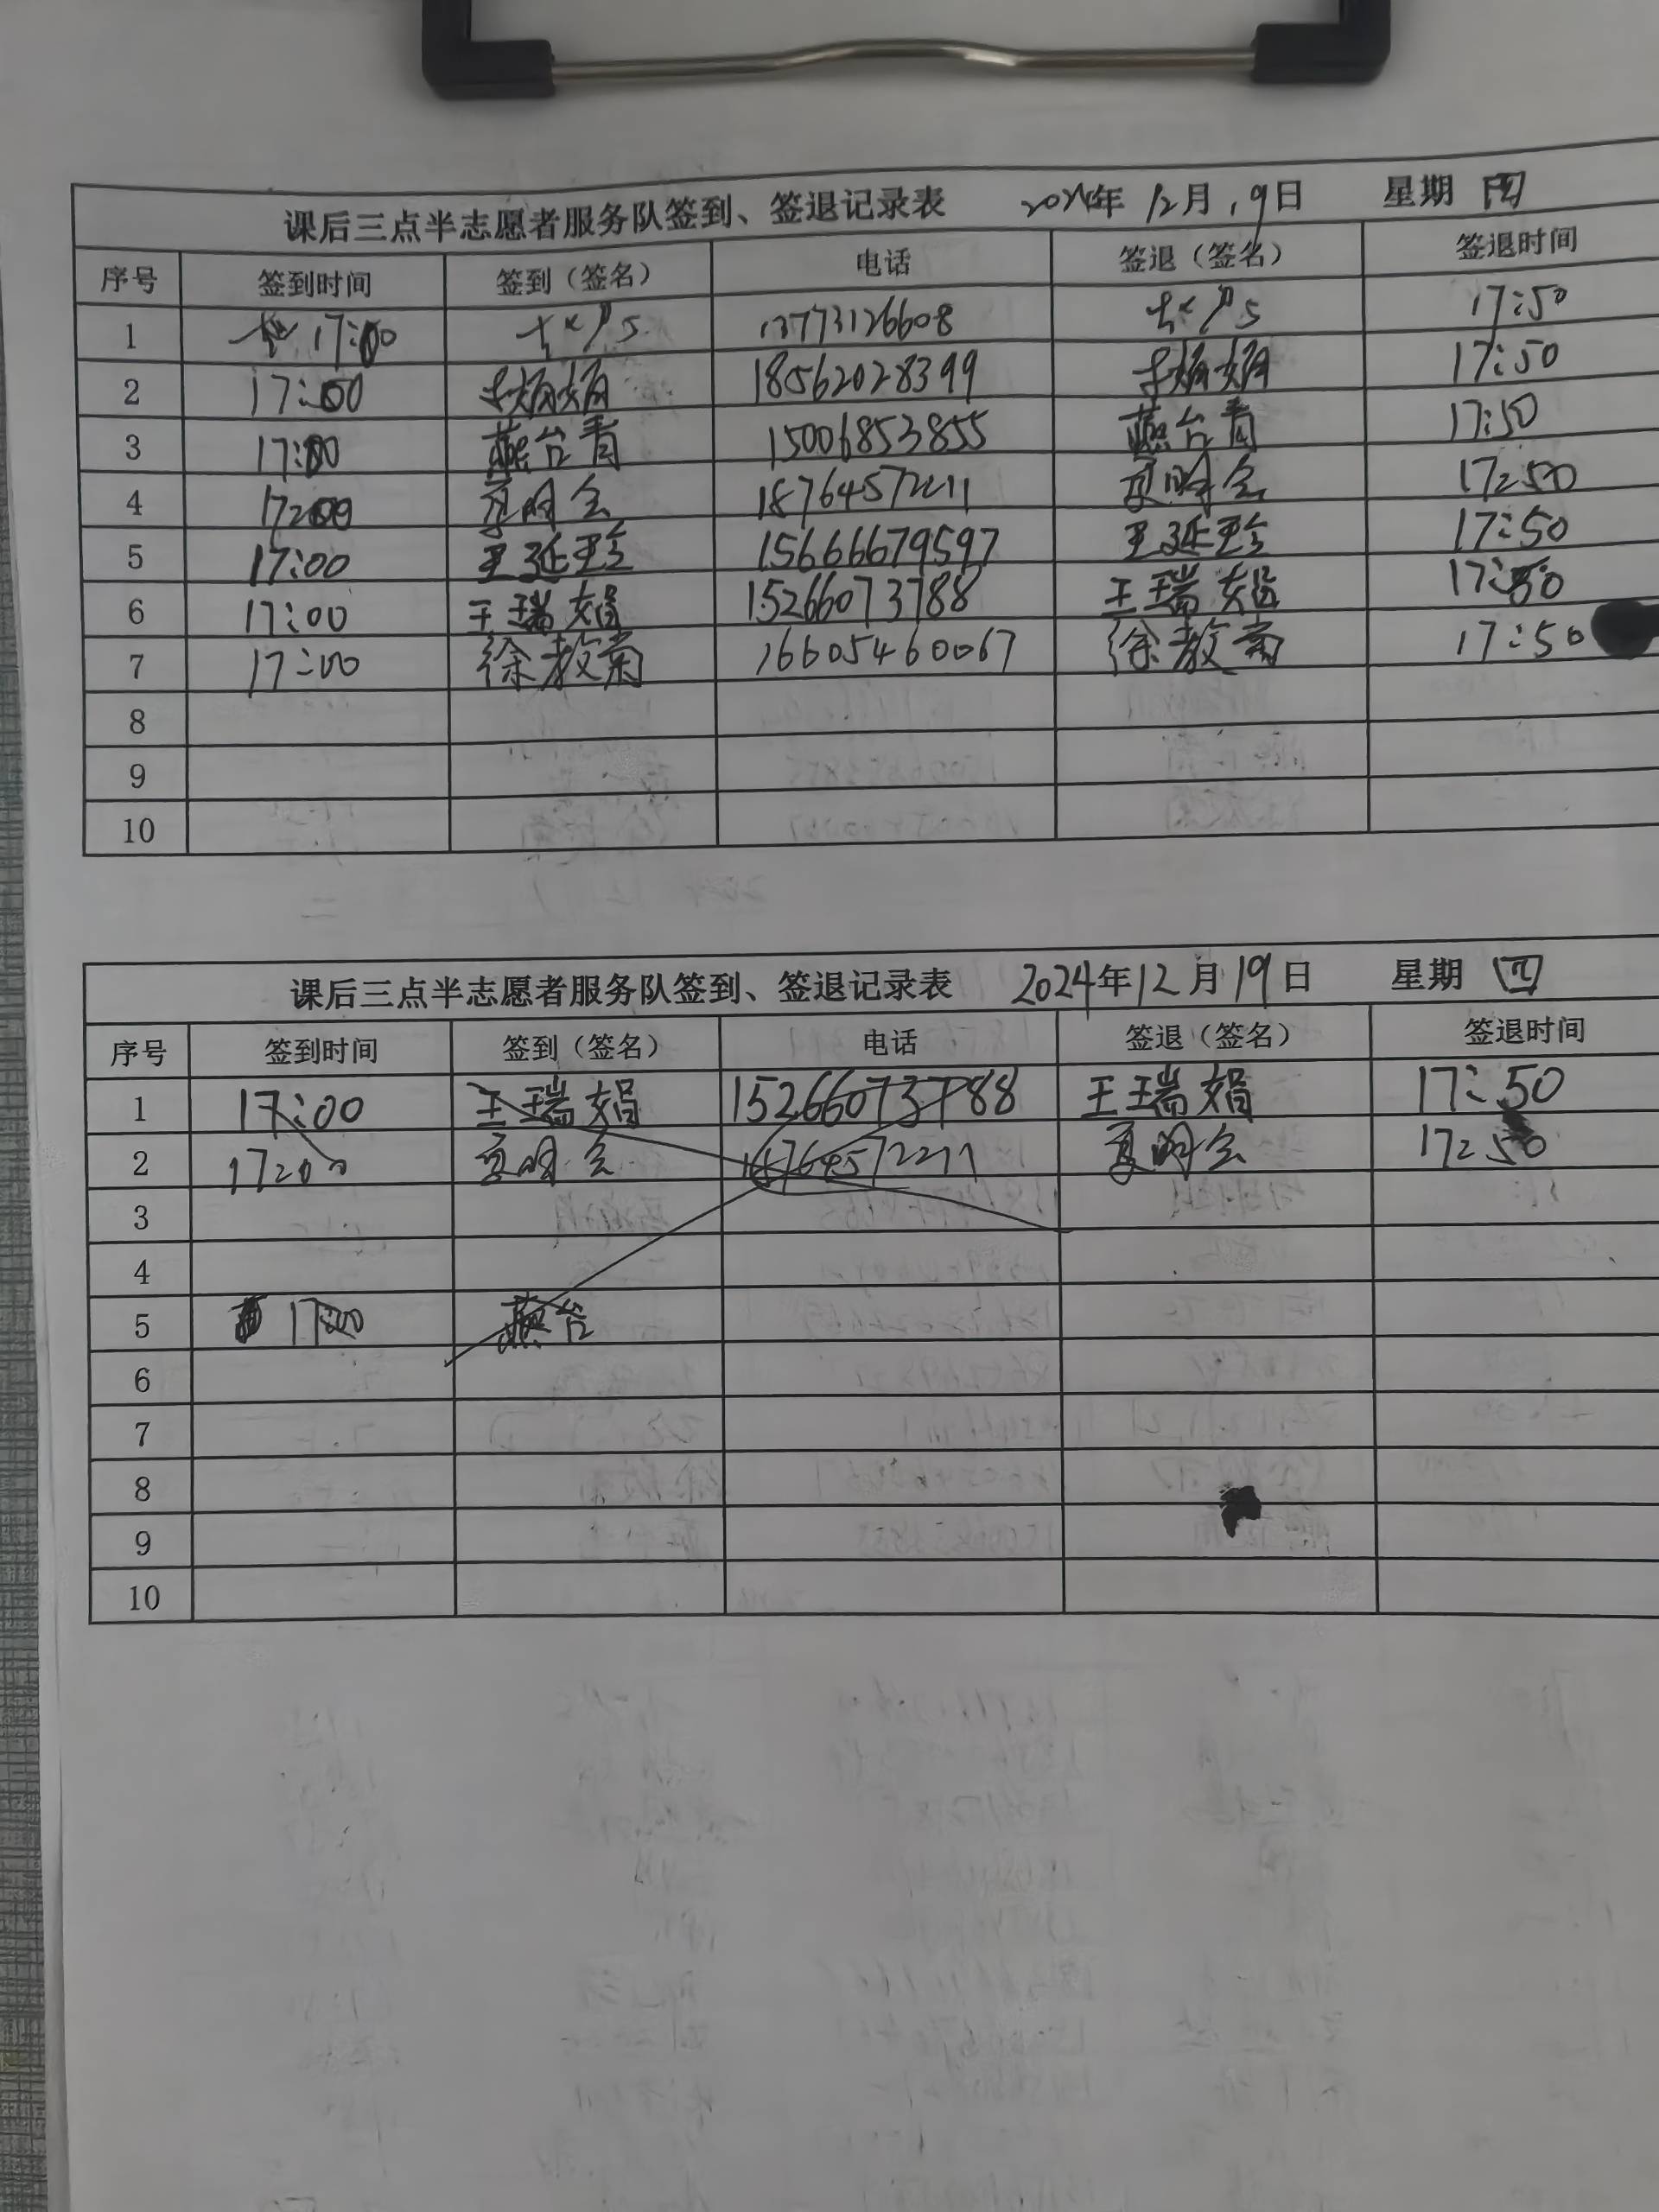 课后三点半志愿者服务队签到、签退记录表 2024年 12月 19日 星期 四
序号 签到时间 签到（签名） 电话 签退（签名） 签退时间
1 17:00 13773126608 17:50
2 17:00 18562028399 17:50
3 17:00 燕台青 15006853855 燕台青 17:50
4 17:00 夏明会 18764572211 夏明会 17:50
5 17:00 王延玲 15666679597 王延玲 17:50
6 17:00 王瑞娟 15266073788 王瑞娟 17:50
7 17:00 徐教菊 16605460067 徐教菊 17:50
8
9
10
课后三点半志愿者服务队签到、签退记录表 2024年12月19日 星期 四
序号 签到时间 签到（签名） 电话 签退（签名） 签退时间
1 17:00 王瑞娟 15266073788 王瑞娟 17:50
2 17:00 夏明会 18764572211 夏明会 17:50
3
4
5 17:00 燕台
6
7
8
9
10